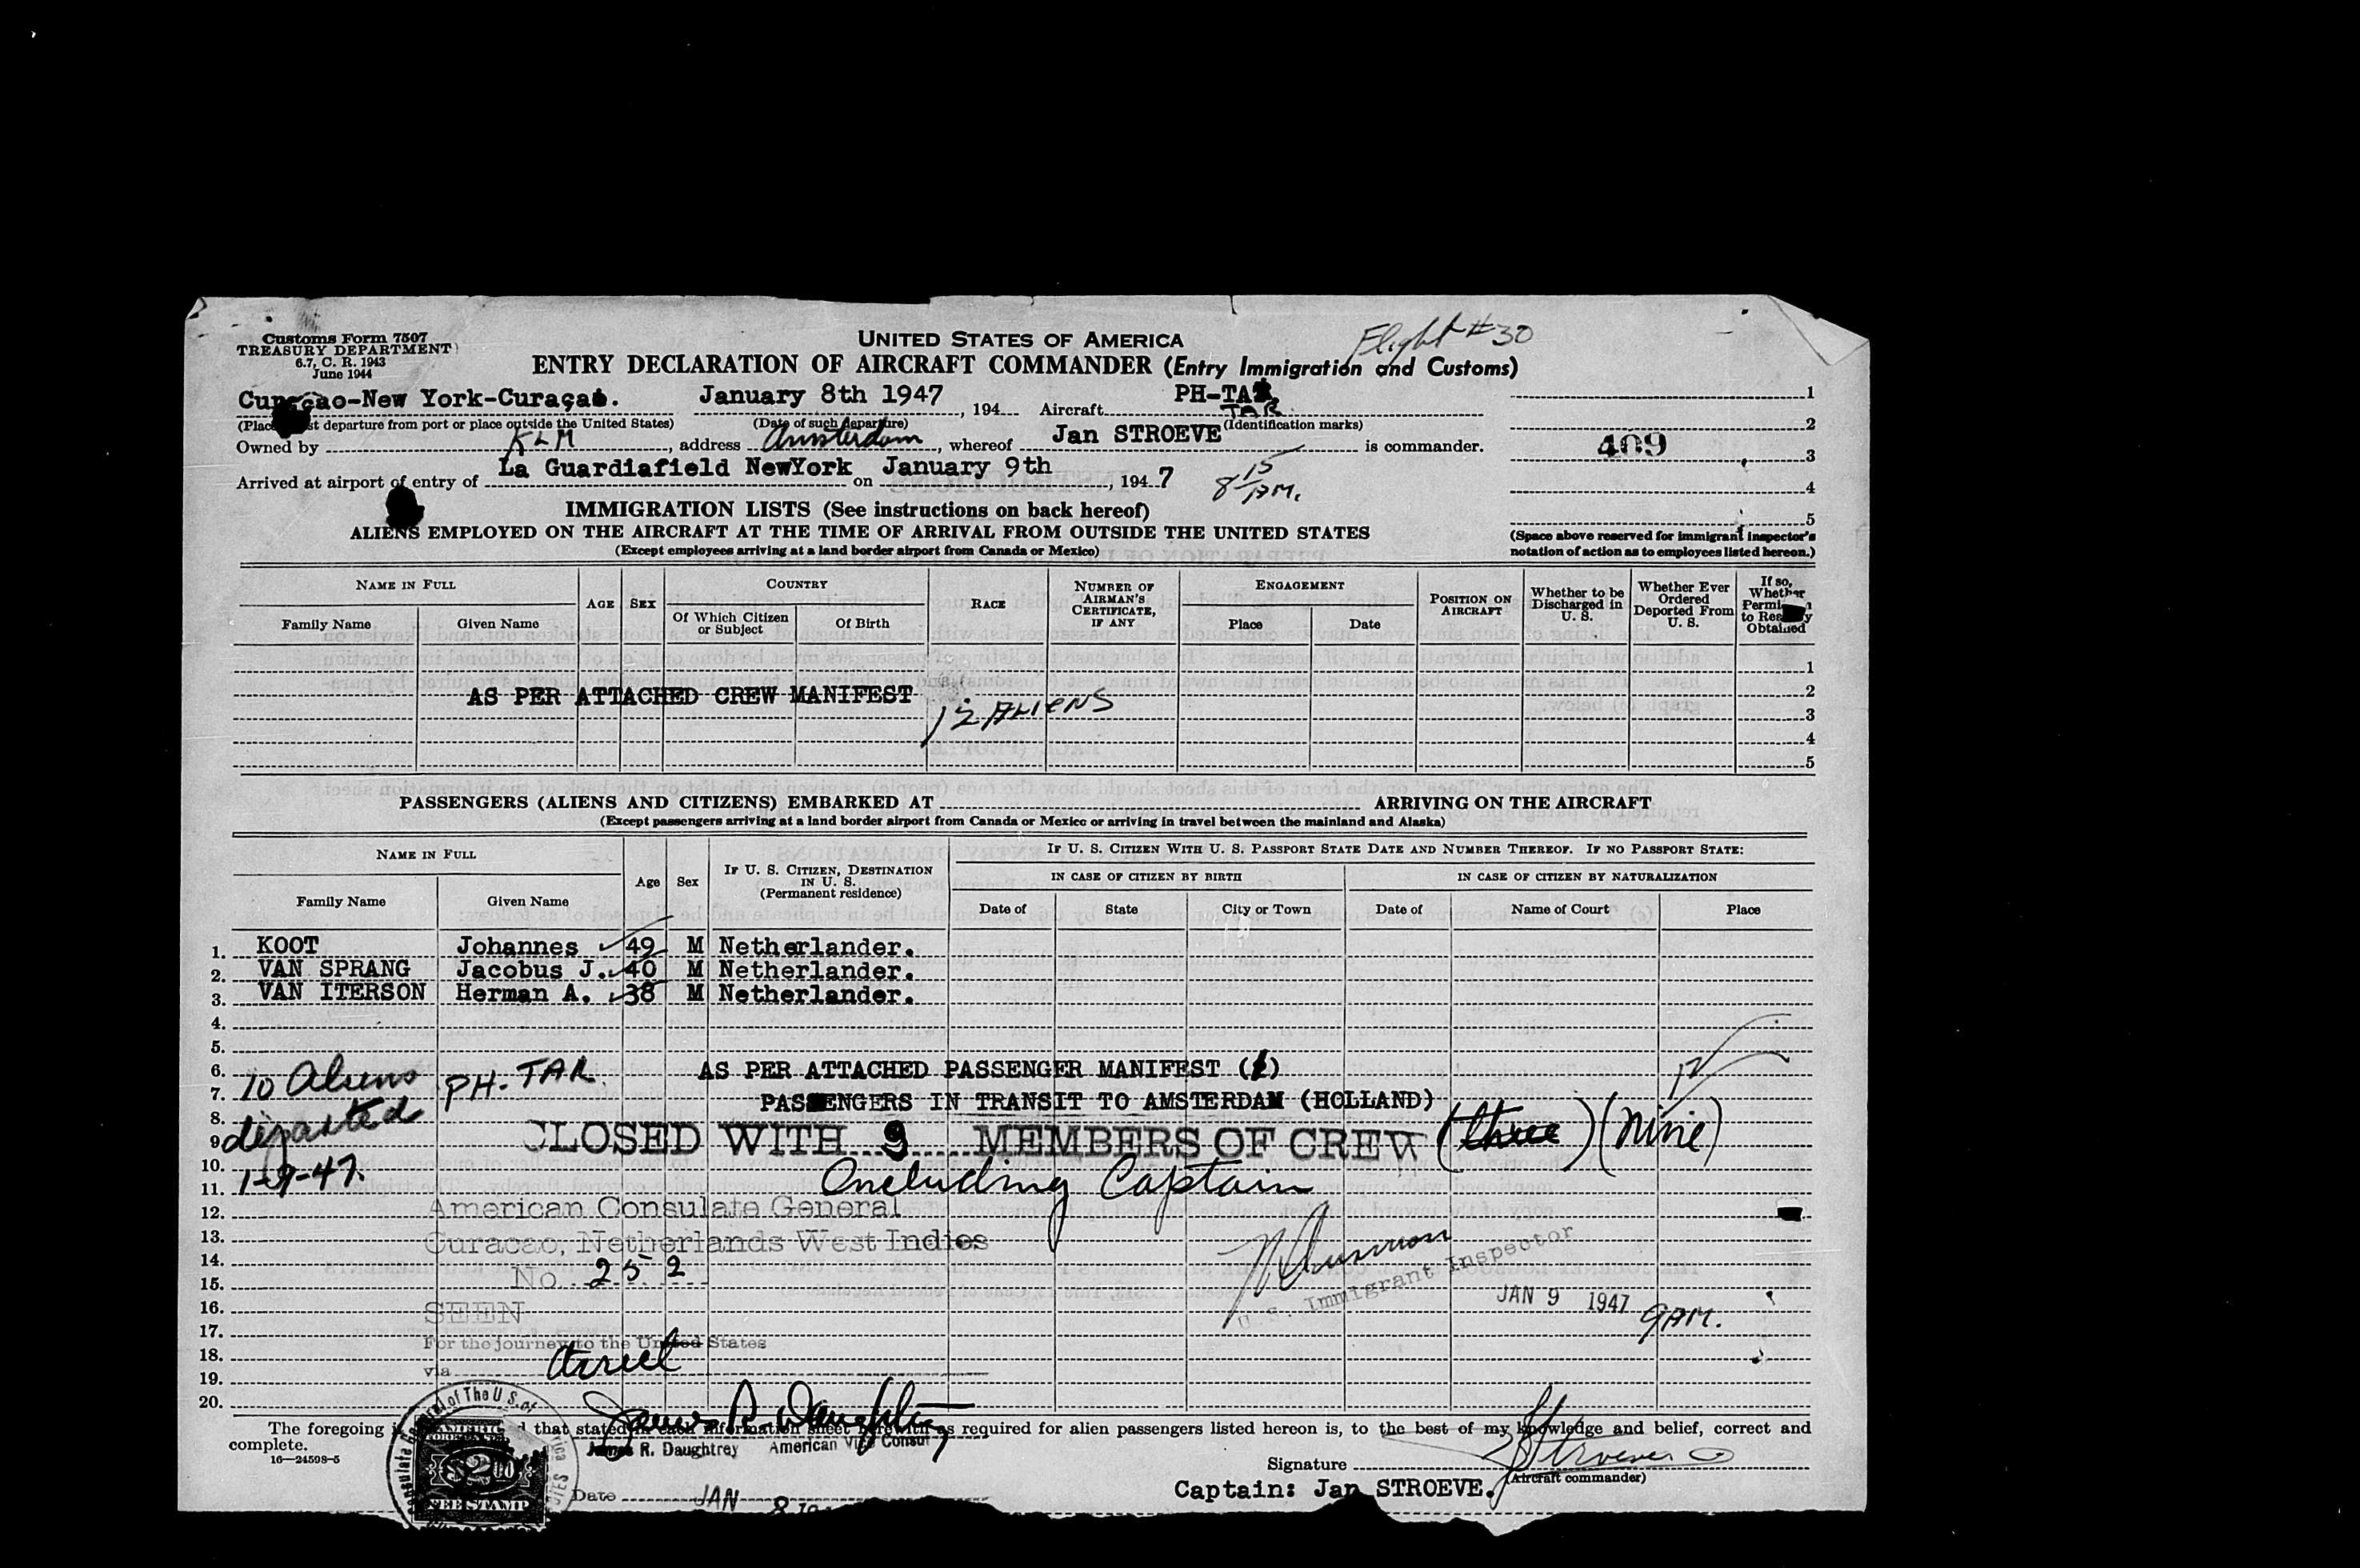 Customs Form 7507
TREASURY DEPARTMENT
6.7, C. R. 1943
June 1944
UNITED STATES OF AMERICA
Flight #30
ENTRY DECLARATION OF AIRCRAFT COMMANDER (Entry Immigration and Customs)
Curaçao-New York-Curaçao. January 8th 1947, 194 Aircraft PH-TA
TAR
(Place st departure from port or place outside the United States) (Date of such departure) (Identification marks)
Owned by KLM, address Amsterdam, whereof Jan STROEVE is commander.
Arrived at airport of entry of La Guardiafield NewYork on January 9th, 1947 8 15 AM.
1
2
409
3
4
5
(Space above reserved for immigrant inspector's notation of action as to employees listed hereon.)
IMMIGRATION LISTS (See instructions on back hereof)
ALIENS EMPLOYED ON THE AIRCRAFT AT THE TIME OF ARRIVAL FROM OUTSIDE THE UNITED STATES
(Except employees arriving at a land border airport from Canada or Mexico)
NAME IN FULL
Family Name Given Name
AGE SEX
COUNTRY
Of Which Citizen or Subject Of Birth
RACE
NUMBER OF AIRMAN'S CERTIFICATE, IF ANY
ENGAGEMENT
Place Date
POSITION ON AIRCRAFT
Whether to be Discharged in U. S.
Whether Ever Ordered Deported From U. S.
If so, Whether to Obtained
1
AS PER ATTACHED CREW MANIFEST 2
12 ALIENS 3
4
5
PASSENGERS (ALIENS AND CITIZENS) EMBARKED AT ARRIVING ON THE AIRCRAFT
(Except passengers arriving at a land border airport from Canada or Mexico or arriving in travel between the mainland and Alaska)
NAME IN FULL
Family Name Given Name
Age Sex
IF U. S. CITIZEN, DESTINATION IN U. S. (Permanent residence)
IF U. S. CITIZEN WITH U. S. PASSPORT STATE DATE AND NUMBER THEREOF. IF NO PASSPORT STATE:
IN CASE OF CITIZEN BY BIRTH IN CASE OF CITIZEN BY NATURALIZATION
Date of State City or Town Date of Name of Court Place
1. KOOT Johannes 49 M Netherlander.
2. VAN SPRANG Jacobus J. 40 M Netherlander.
3. VAN ITERSON Herman A. 38 M Netherlander.
4.
5.
6. AS PER ATTACHED PASSENGER MANIFEST
7. 10 Aliens PH-TAR. 12
PASSENGERS IN TRANSIT TO AMSTERDAM (HOLLAND)
8. departed
9. CLOSED WITH 9 MEMBERS OF CREW (three) (Nine)
10. 1-9-47.
11. Including Captain
12. American Consulate General
13. Curacao, Netherlands West Indies
14. No. 252
15. U. S. Immigrant Inspector JAN 9 1947
16. SEEN 9 AM.
17. For the journey to the United States
18. via Aircraft
19.
20.
The foregoing that stated in each information sheet herewith as required for alien passengers listed hereon is, to the best of my knowledge and belief, correct and complete.
16—24598-5
James R. Daughtrey
James R. Daughtrey American Vice Consul
Signature J Stroeve
(Aircraft commander)
Captain: Jan STROEVE.
Date JAN 8
$2.00
FEE STAMP